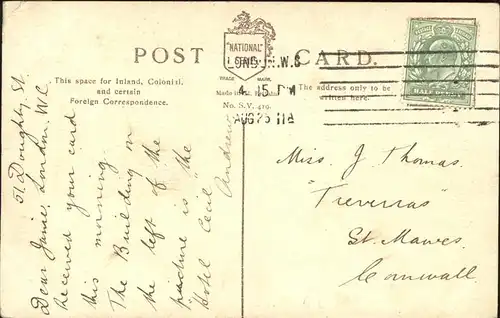 POST CARD.
"NATIONAL"
TRADE MARK.
This space for Inland, Colonial,
and certain
Foreign Correspondence.
The address only to
be written here.
No. S.V. 419.
LOND
W.S
4. 15 PM
AUG 25 11
51 Doughty St
London. W.C.
Dear Janie,
Received your card
this morning.
The Building on
the left of the
picture is "the
Hotel Cecil"
Andrew
Miss J Thomas.
"Treverras"
St. Mawes
Cornwall